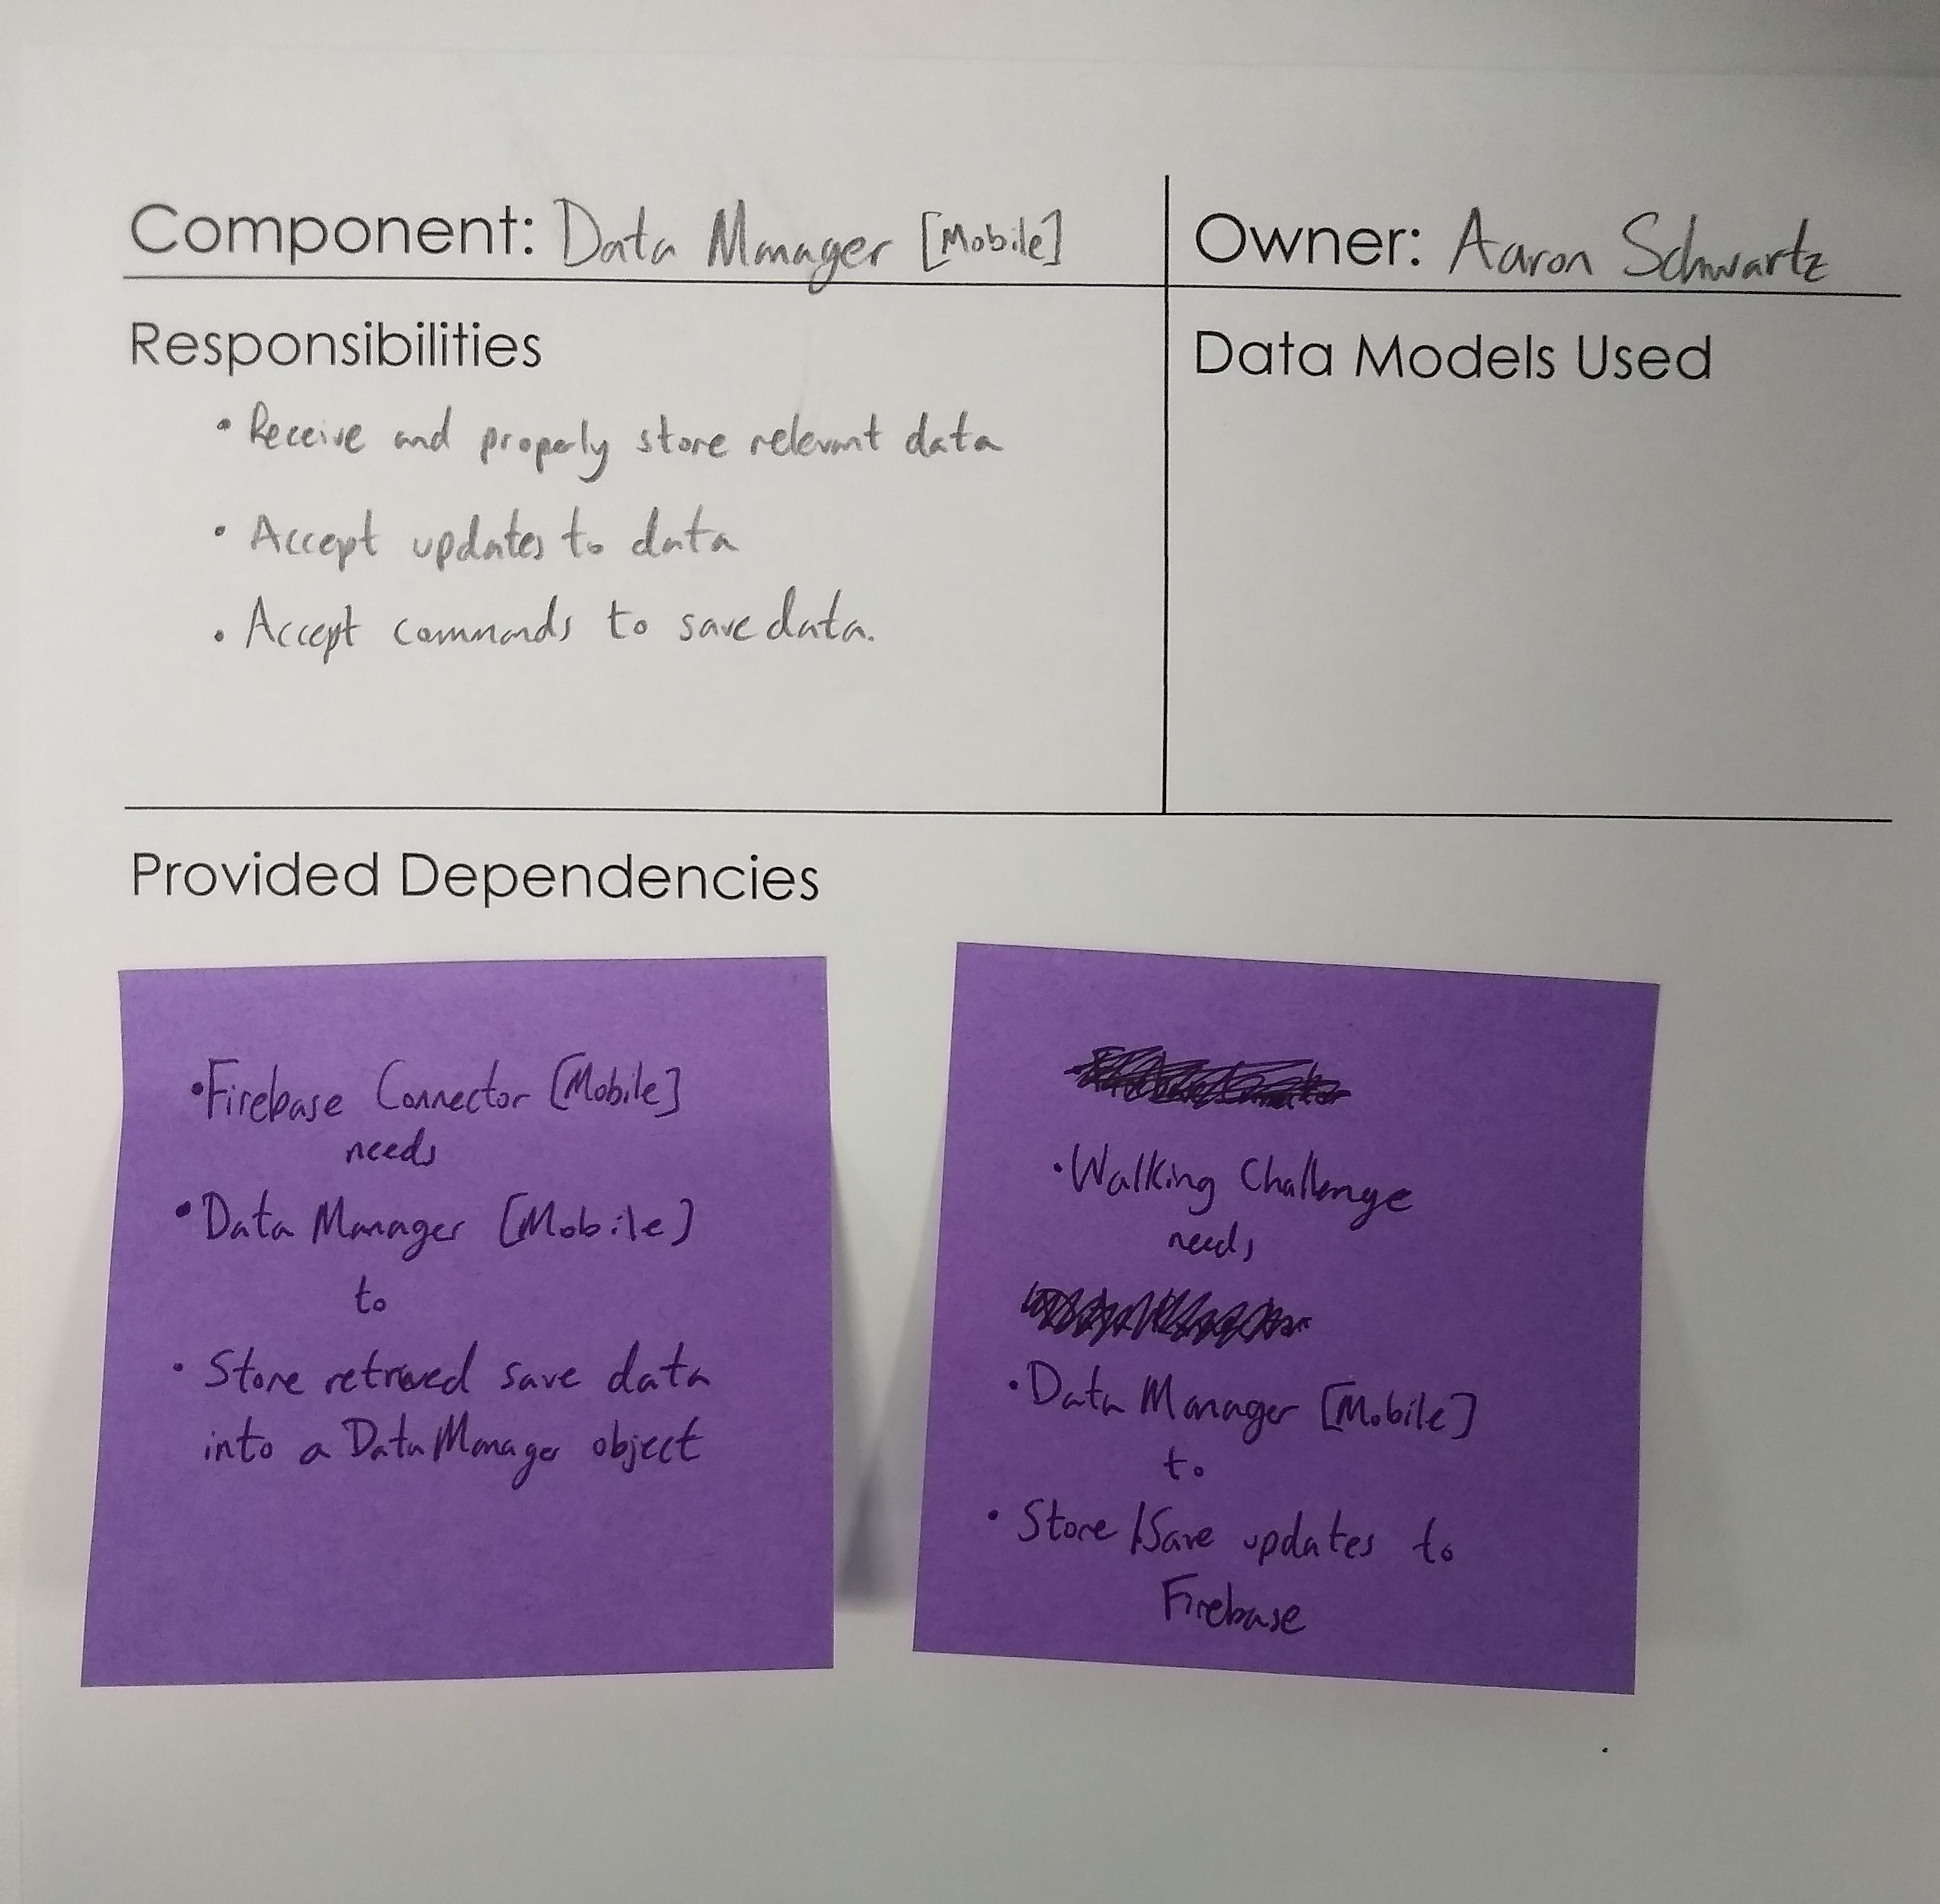 Component: Data Manager [Mobile]
Owner: Aaron Schwartz
Responsibilities
• Receive and properly store relevant data
• Accept updates to data
• Accept commands to save data.
Data Models Used
Provided Dependencies
• Firebase Connector [Mobile]
needs
• Data Manager [Mobile]
to
• Store retrieved save data
into a DataManager object
• Walking Challenge
needs
• Data Manager [Mobile]
to
• Store/Save updates to
Firebase